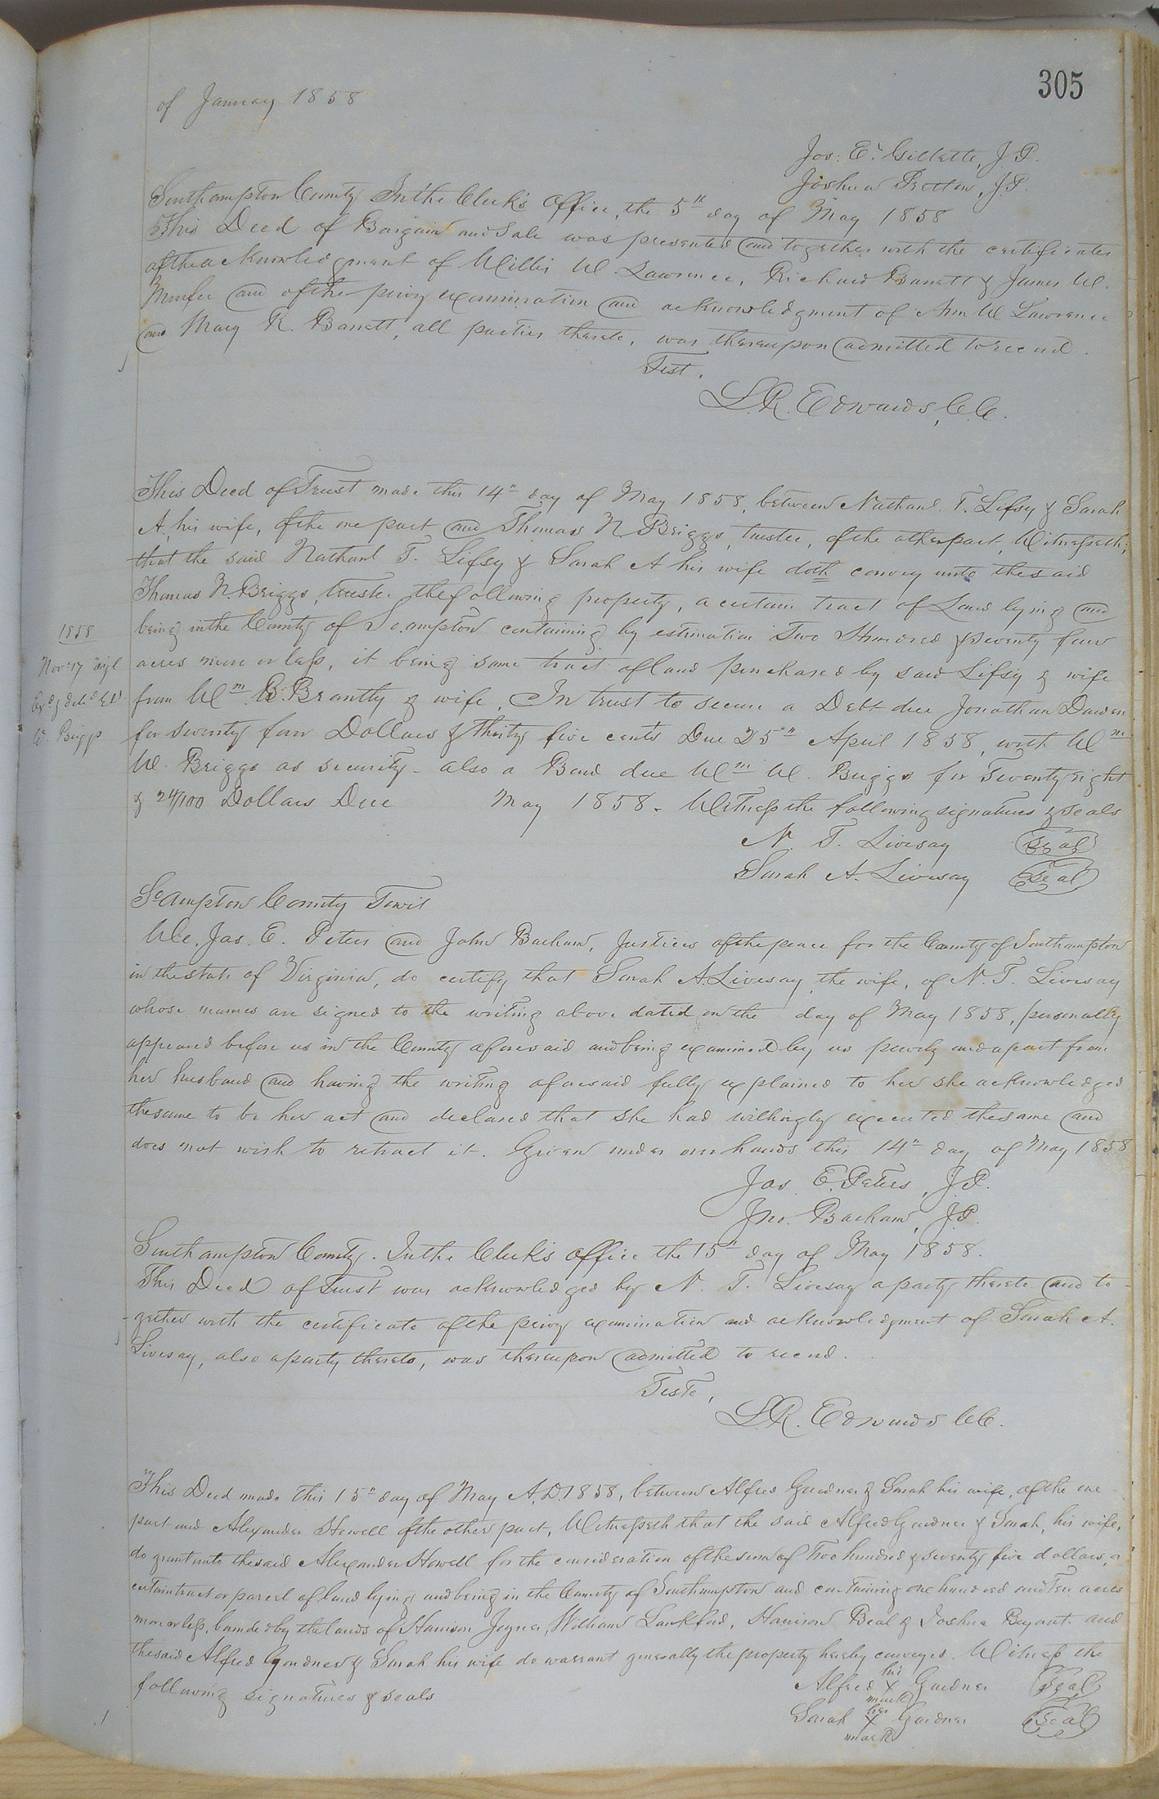 305
of January 1858
Jos: E. Gillette, J.P.
Joshua Pretlow, J.P.
Southampton County In the Clerk's Office, the 5th day of May 1858
This Deed of Bargain and Sale was presented and together with the certificates
of the acknowledgment of Willis W Lawrence, Richard Barrett & James W.
Murfee and of the privy examination and acknowledgment of Ann W Lawrence
and Mary R. Barrett, all parties thereto, was thereupon admitted to record.
Test.
L.R. Edwards, C.C.
This Deed of Trust made this 14th day of May 1858, between Nathanl. T. Lifsy & Sarah
A. his wife, of the one part and Thomas N Briggs, trustee, of the other part, Witnesseth;
that the said Nathanl T. Lifsy & Sarah A his wife doth convey unto the said
Thomas N. Briggs, trustee the following property, a certain tract of Land lying and
being in the County of So.ampton containing by estimation Two Hundred & seventy four
acres more or less, it being same tract of land purchased by said Lifsy & wife
from Wm. B. Brantly & wife, In trust to secure a Debt due Jonathan Darden
for seventy four Dollars & thirty five cents Due 25th April 1858, with Wm
W. Briggs as security - also a Bond due Wm W. Briggs for Seventy eight
& 24/100 Dollars Due May 1858. Witness the following signatures & seals
1858
Nov: 17
Briggs
N. T. Livesay Seal
Sarah A. Livesay Seal
So.ampton County Towit
We, Jas. E. Peters and John Barham, Justices of the peace for the County of Southampton
in the state of Virginia, do certify that Sarah A. Livesay, the wife, of N. T. Livesay
whose names are signed to the writing above dated on the day of May 1858, personally
appeared before us in the County aforesaid and being examined by us privily and apart from
her husband and having the writing aforesaid fully explained to her she acknowledged
the same to be her act and declared that she had willingly executed the same and
does not wish to retract it. Given under our hands this 14th day of May 1858
Jas E. Peters, J.P.
Jno. Barham, J.P.
Southampton County. In the Clerk's office the 15th day of May 1858.
This Deed of trust was acknowledged by N. T. Livesay a party thereto and to-
gether with the certificate of the privy examination and acknowledgment of Sarah A.
Livesay, also a party thereto, was thereupon admitted to record.
Teste,
L.R. Edwards C.C.
This Deed made this 15th day of May A.D. 1858, between Alfred Gardner & Sarah his wife, of the one
part and Alexander Howell of the other part, Witnesseth that the said Alfred Gardner & Sarah, his wife,
do grant unto the said Alexander Howell for the consideration of the sum of Two hundred & seventy five dollars, a
certain tract or parcel of land lying and being in the County of Southampton and containing one hundred and Ten acres
more or less, bounded by the lands of Harrison Joyner, William Lankford, Harrison Beal & Joshua Bryant. and
the said Alfred Gardner & Sarah his wife do warrant generally the property hereby conveyed. Witness the
following signatures & seals
Alfred his X mark Gardner Seal
Sarah her X mark Gardner Seal